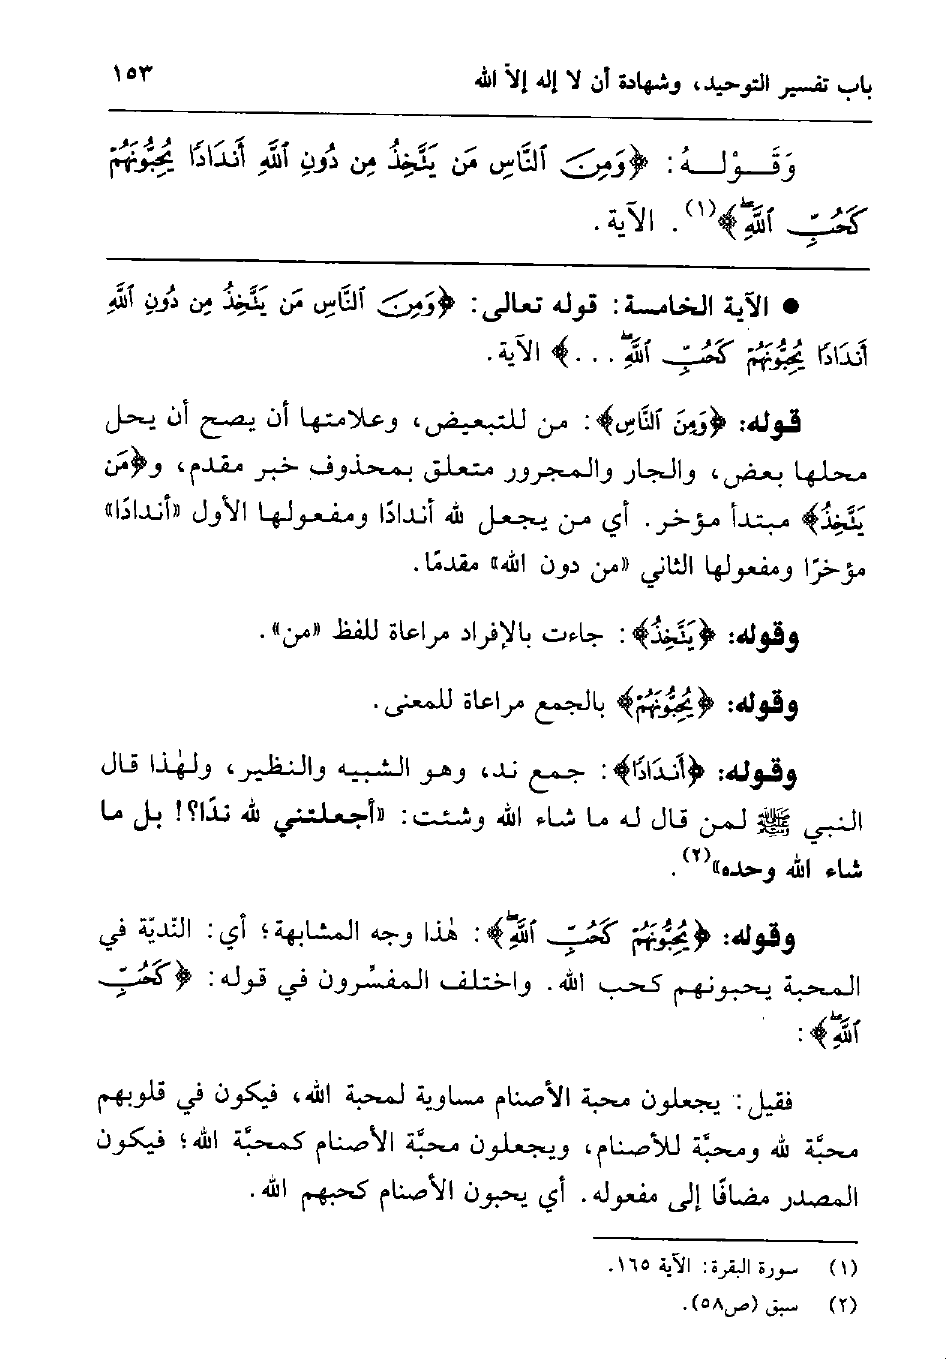 باب تفسير التوحيد، وشهادة أن لا إله إلاّ الله
١٥٣
وَقَـــوْلـــهُ: ﴿وَمِنَ ٱلنَّاسِ مَن يَتَّخِذُ مِن دُونِ ٱللَّهِ أَندَادًا يُحِبُّونَهُمْ
كَحُبِّ ٱللَّهِۖ﴾(١). الآية.
● الآية الخامسة: قوله تعالى: ﴿وَمِنَ ٱلنَّاسِ مَن يَتَّخِذُ مِن دُونِ ٱللَّهِ
أَندَادًا يُحِبُّونَهُمْ كَحُبِّ ٱللَّهِۖ ...﴾ الآية.
قوله: ﴿وَمِنَ ٱلنَّاسِ﴾: من للتبعيض، وعلامتها أن يصح أن يحل
محلها بعض، والجار والمجرور متعلق بمحذوف خبر مقدم، و﴿مَن
يَتَّخِذُ﴾ مبتدأ مؤخر. أي من يجعل لله أندادًا ومفعولها الأول «أندادًا»
مؤخرًا ومفعولها الثاني «من دون الله» مقدمًا.
وقوله: ﴿يَتَّخِذُ﴾: جاءت بالإفراد مراعاة للفظ «من».
وقوله: ﴿يُحِبُّونَهُمْ﴾ بالجمع مراعاة للمعنى.
وقوله: ﴿أَندَادًا﴾: جمع ند، وهو الشبيه والنظير، ولهٰذا قال
النبي ﷺ لمن قال له ما شاء الله وشئت: «أجعلتني لله ندًا؟! بل ما
شاء الله وحده»(٢).
وقوله: ﴿يُحِبُّونَهُمْ كَحُبِّ ٱللَّهِۖ﴾: هٰذا وجه المشابهة؛ أي: النّديّة في
المحبة يحبونهم كحب الله. واختلف المفسِّرون في قوله: ﴿كَحُبِّ
ٱللَّهِۖ﴾:
فقيل: يجعلون محبة الأصنام مساوية لمحبة الله، فيكون في قلوبهم
محبَّة لله ومحبَّة للأصنام، ويجعلون محبَّة الأصنام كمحبَّة الله؛ فيكون
المصدر مضافًا إلى مفعوله. أي يحبون الأصنام كحبهم الله.
(١) سورة البقرة: الآية ١٦٥.
(٢) سبق (ص٥٨).